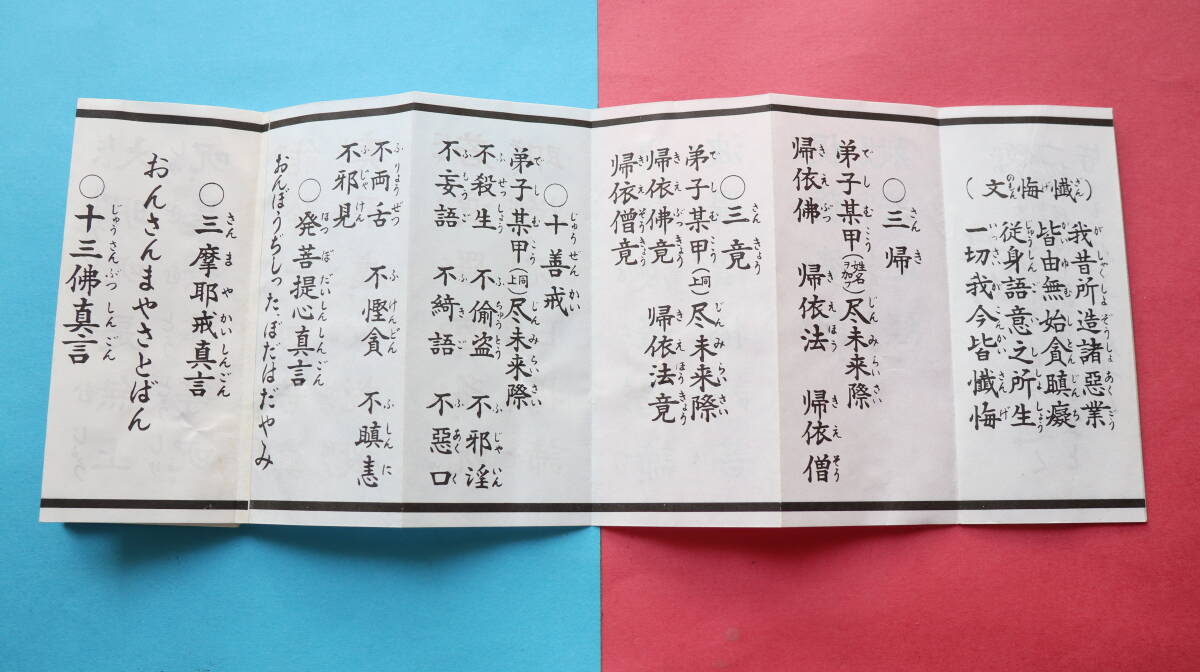 (懺悔文)
我昔所造諸惡業
皆由無始貪瞋癡
従身語意之所生
一切我今皆懺悔
○三帰
弟子某甲(姓名ヲ加フ)尽未来際
帰依佛 帰依法 帰依僧
○三竟
弟子某甲(上同)尽未来際
帰依佛竟 帰依法竟
帰依僧竟
○十善戒
弟子某甲(上同)尽未来際
不殺生 不偷盗 不邪淫
不妄語 不綺語 不惡口
不両舌 不慳貪 不瞋恚
不邪見
○発菩提心真言
おんぼうぢしった、ぼだはだやみ
○三摩耶戒真言
おんさんまやさとばん
○十三佛真言